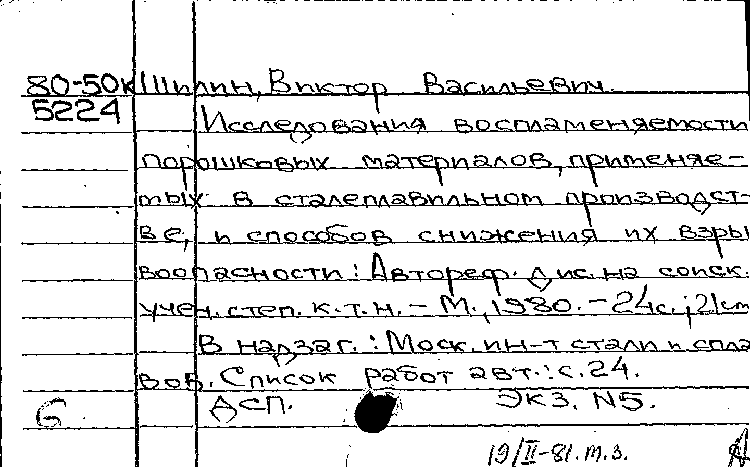 80-50к Шилин, Виктор Васильевич.
5224 Исследования воспламеняемости
порошковых материалов, применяе-
мых в сталеплавильном производст-
ве, и способов снижения их взры
воопасности: Автореф. дис. на соиск.
учен. степ. к.т.н. - М., 1980. - 24с.; 21см
В надзаг.: Моск. ин-т стали и спла
вов. Список работ авт.: с.24.
Б ДСП. Экз. N5.
19/II-81. т.з.